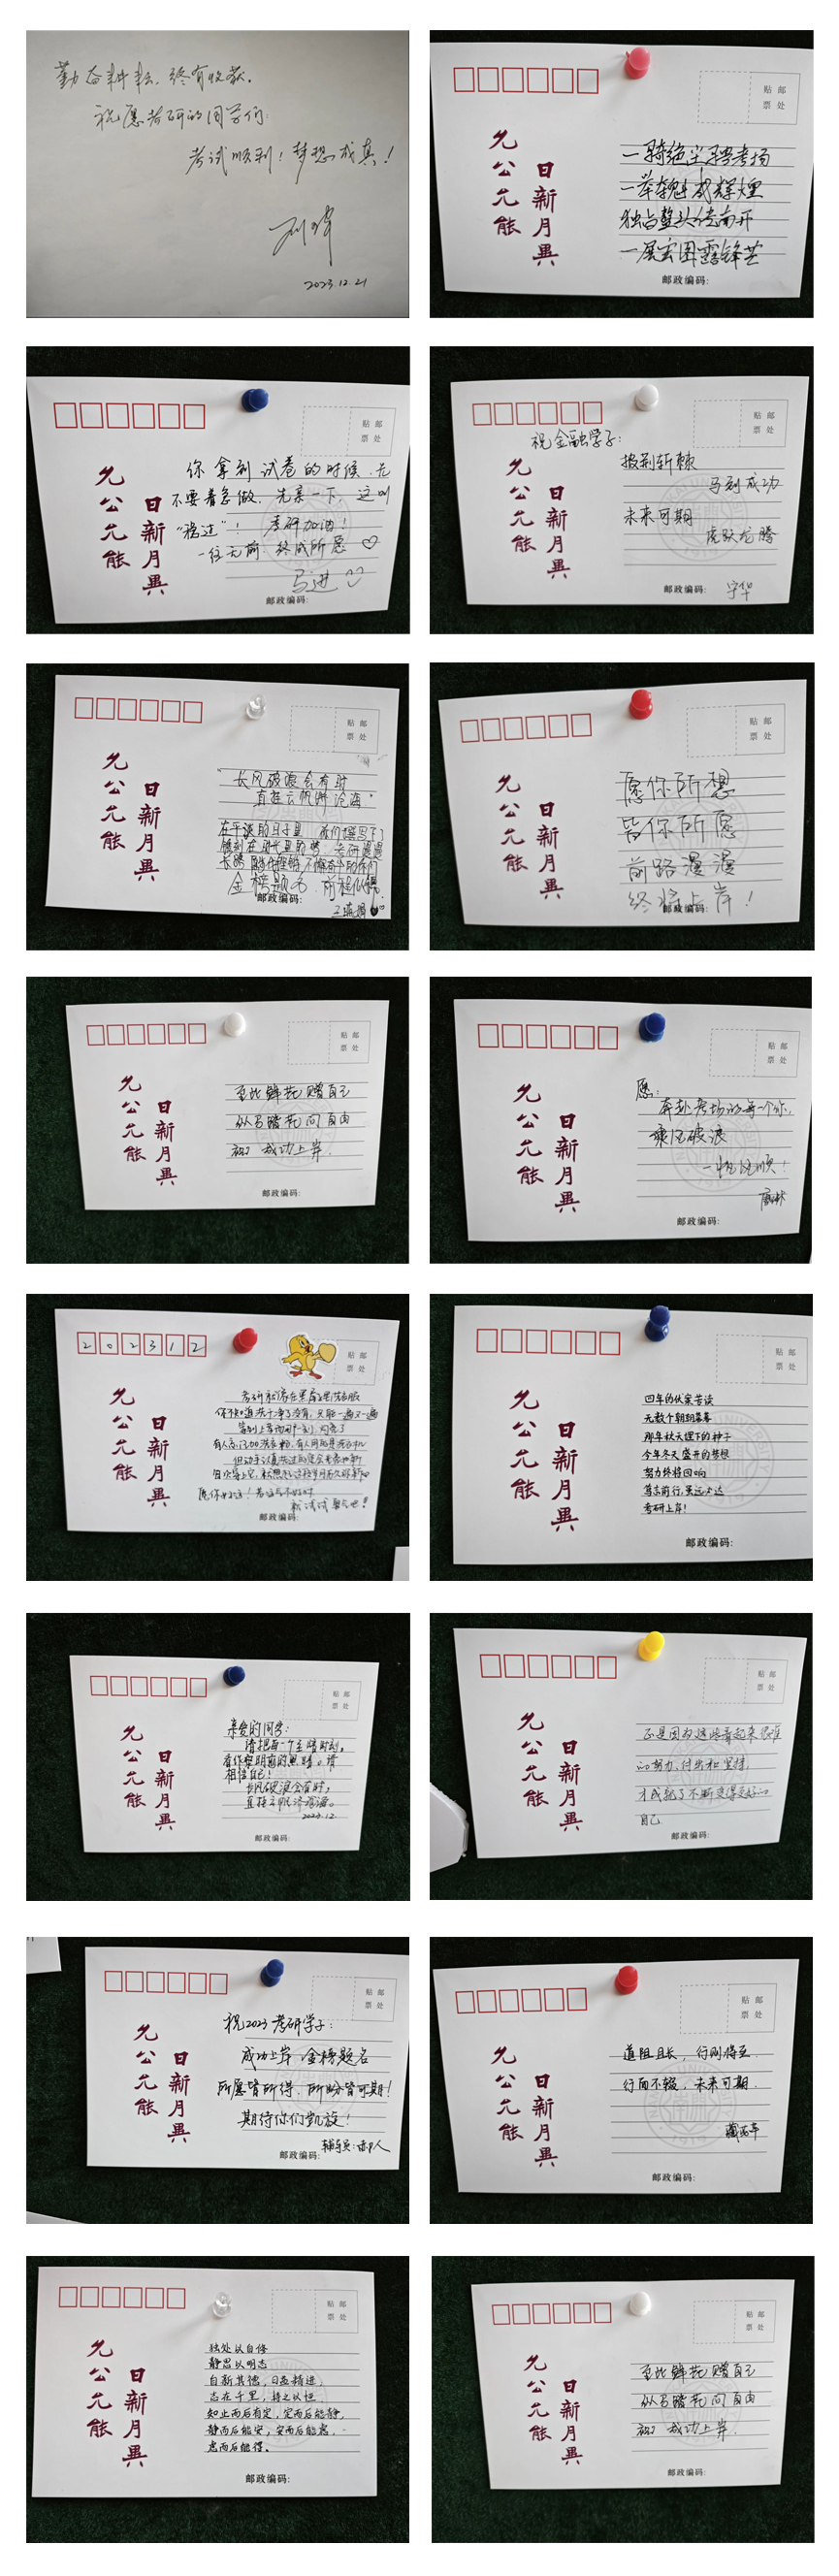 勤奋耕耘,终有收获。
祝愿考研的同学们:
考试顺利!梦想成真!
刘
2023.12.21
贴 邮
票 处
允公允能
日新月異
一骑绝尘骋考场
一举夺魁成辉煌
独占鳌头传南开
一展宏图露锋芒
邮政编码:
贴 邮
票 处
允公允能
日新月異
你拿到试卷的时候,先
不要着急做,先亲一下,这叫
“稳过”!考研加油!
一往无前 终成所愿
马进
邮政编码:
贴 邮
票 处
允公允能
日新月異
祝金融学子:
披荆斩棘
马到成功
未来可期
虎跃龙腾
宁华
邮政编码:
贴 邮
票 处
允公允能
日新月異
“长风破浪会有时
直挂云帆济沧海”
在平淡的日子里
金榜题名,前程似锦
邮政编码:
贴 邮
票 处
允公允能
日新月異
愿你所想
皆你所愿
前路漫漫
终将上岸!
邮政编码:
贴 邮
票 处
允公允能
日新月異
至此鲜花赠自己
纵马踏花向自由
祝 成功上岸.
邮政编码:
贴 邮
票 处
允公允能
日新月異
愿:
奔赴考场的每一个你,
乘风破浪
一帆风顺!
邮政编码:
202312
贴 邮
票 处
允公允能
日新月異
考研就像在黑屋子里洗衣服
你不知道洗干净了没有,只能一遍又一遍
邮政编码:
贴 邮
票 处
允公允能
日新月異
四年的伏案苦读
无数个朝朝暮暮
那年秋天埋下的种子
今年冬天盛开的梦想
努力终将回响
笃志前行,虽远必达
考研上岸!
邮政编码:
贴 邮
票 处
允公允能
日新月異
亲爱的同学:
请把每一个至暗时刻,
看作黎明前的黑暗。请
相信自己!
长风破浪会有时,
直挂云帆济沧海。
2023.12
邮政编码:
贴 邮
票 处
允公允能
日新月異
正是因为这些看起来很难
的努力,付出和坚持,
才成就了不断变得更好的
自己
邮政编码:
贴 邮
票 处
允公允能
日新月異
祝2023考研学子:
成功上岸 金榜题名
所愿皆所得,所盼皆可期!
期待你们凯旋!
辅导员:
邮政编码:
贴 邮
票 处
允公允能
日新月異
道阻且长,行则将至.
行而不辍,未来可期.
邮政编码:
贴 邮
票 处
允公允能
日新月異
独处以自修
静思以明志
自新其德,日益精进
志在千里,持之以恒
知止而后有定,定而后能静,
静而后能安,安而后能虑,
虑而后能得。
邮政编码:
贴 邮
票 处
允公允能
日新月異
至此鲜花赠自己
纵马踏花向自由
祝 成功上岸.
邮政编码: